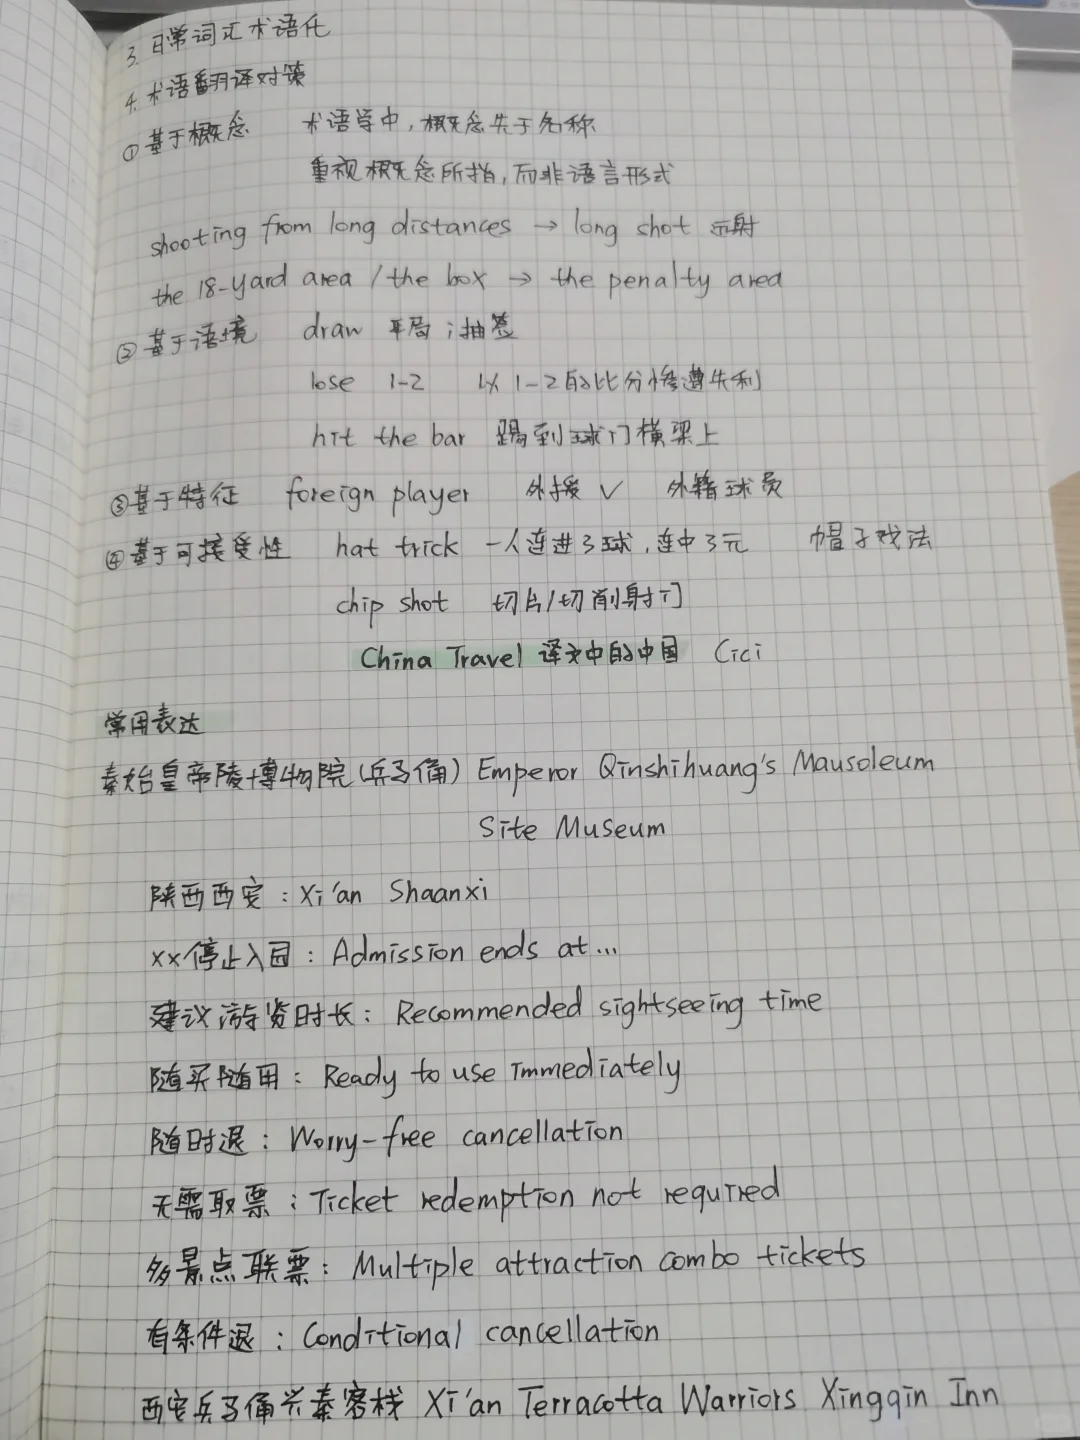 3. 日常词汇术语化
4. 术语翻译对策
①基于概念 术语学中,概念先于名称
重视概念所指,而非语言形式
shooting from long distances → long shot 远射
the 18-yard area / the box → the penalty area
②基于语境 draw 平局;抽签
lose 1-2 以1-2的比分惨遭失利
hit the bar 踢到球门横梁上
③基于特征 foreign player 外援 √ 外籍球员
④基于可接受性 hat trick 一人连进3球,连中3元 帽子戏法
chip shot 切片/切削射门
China Travel 译文中的中国 Cici
常用表达
秦始皇帝陵博物院(兵马俑) Emperor Qinshihuang's Mausoleum
Site Museum
陕西西安: Xi'an Shaanxi
xx停止入园: Admission ends at...
建议游览时长: Recommended sightseeing time
随买随用: Ready to use immediately
随时退: Worry-free cancellation
无需取票: Ticket redemption not required
多景点联票: Multiple attraction combo tickets
有条件退: Conditional cancellation
西安兵马俑兴秦客栈 Xi'an Terracotta Warriors Xingqin Inn